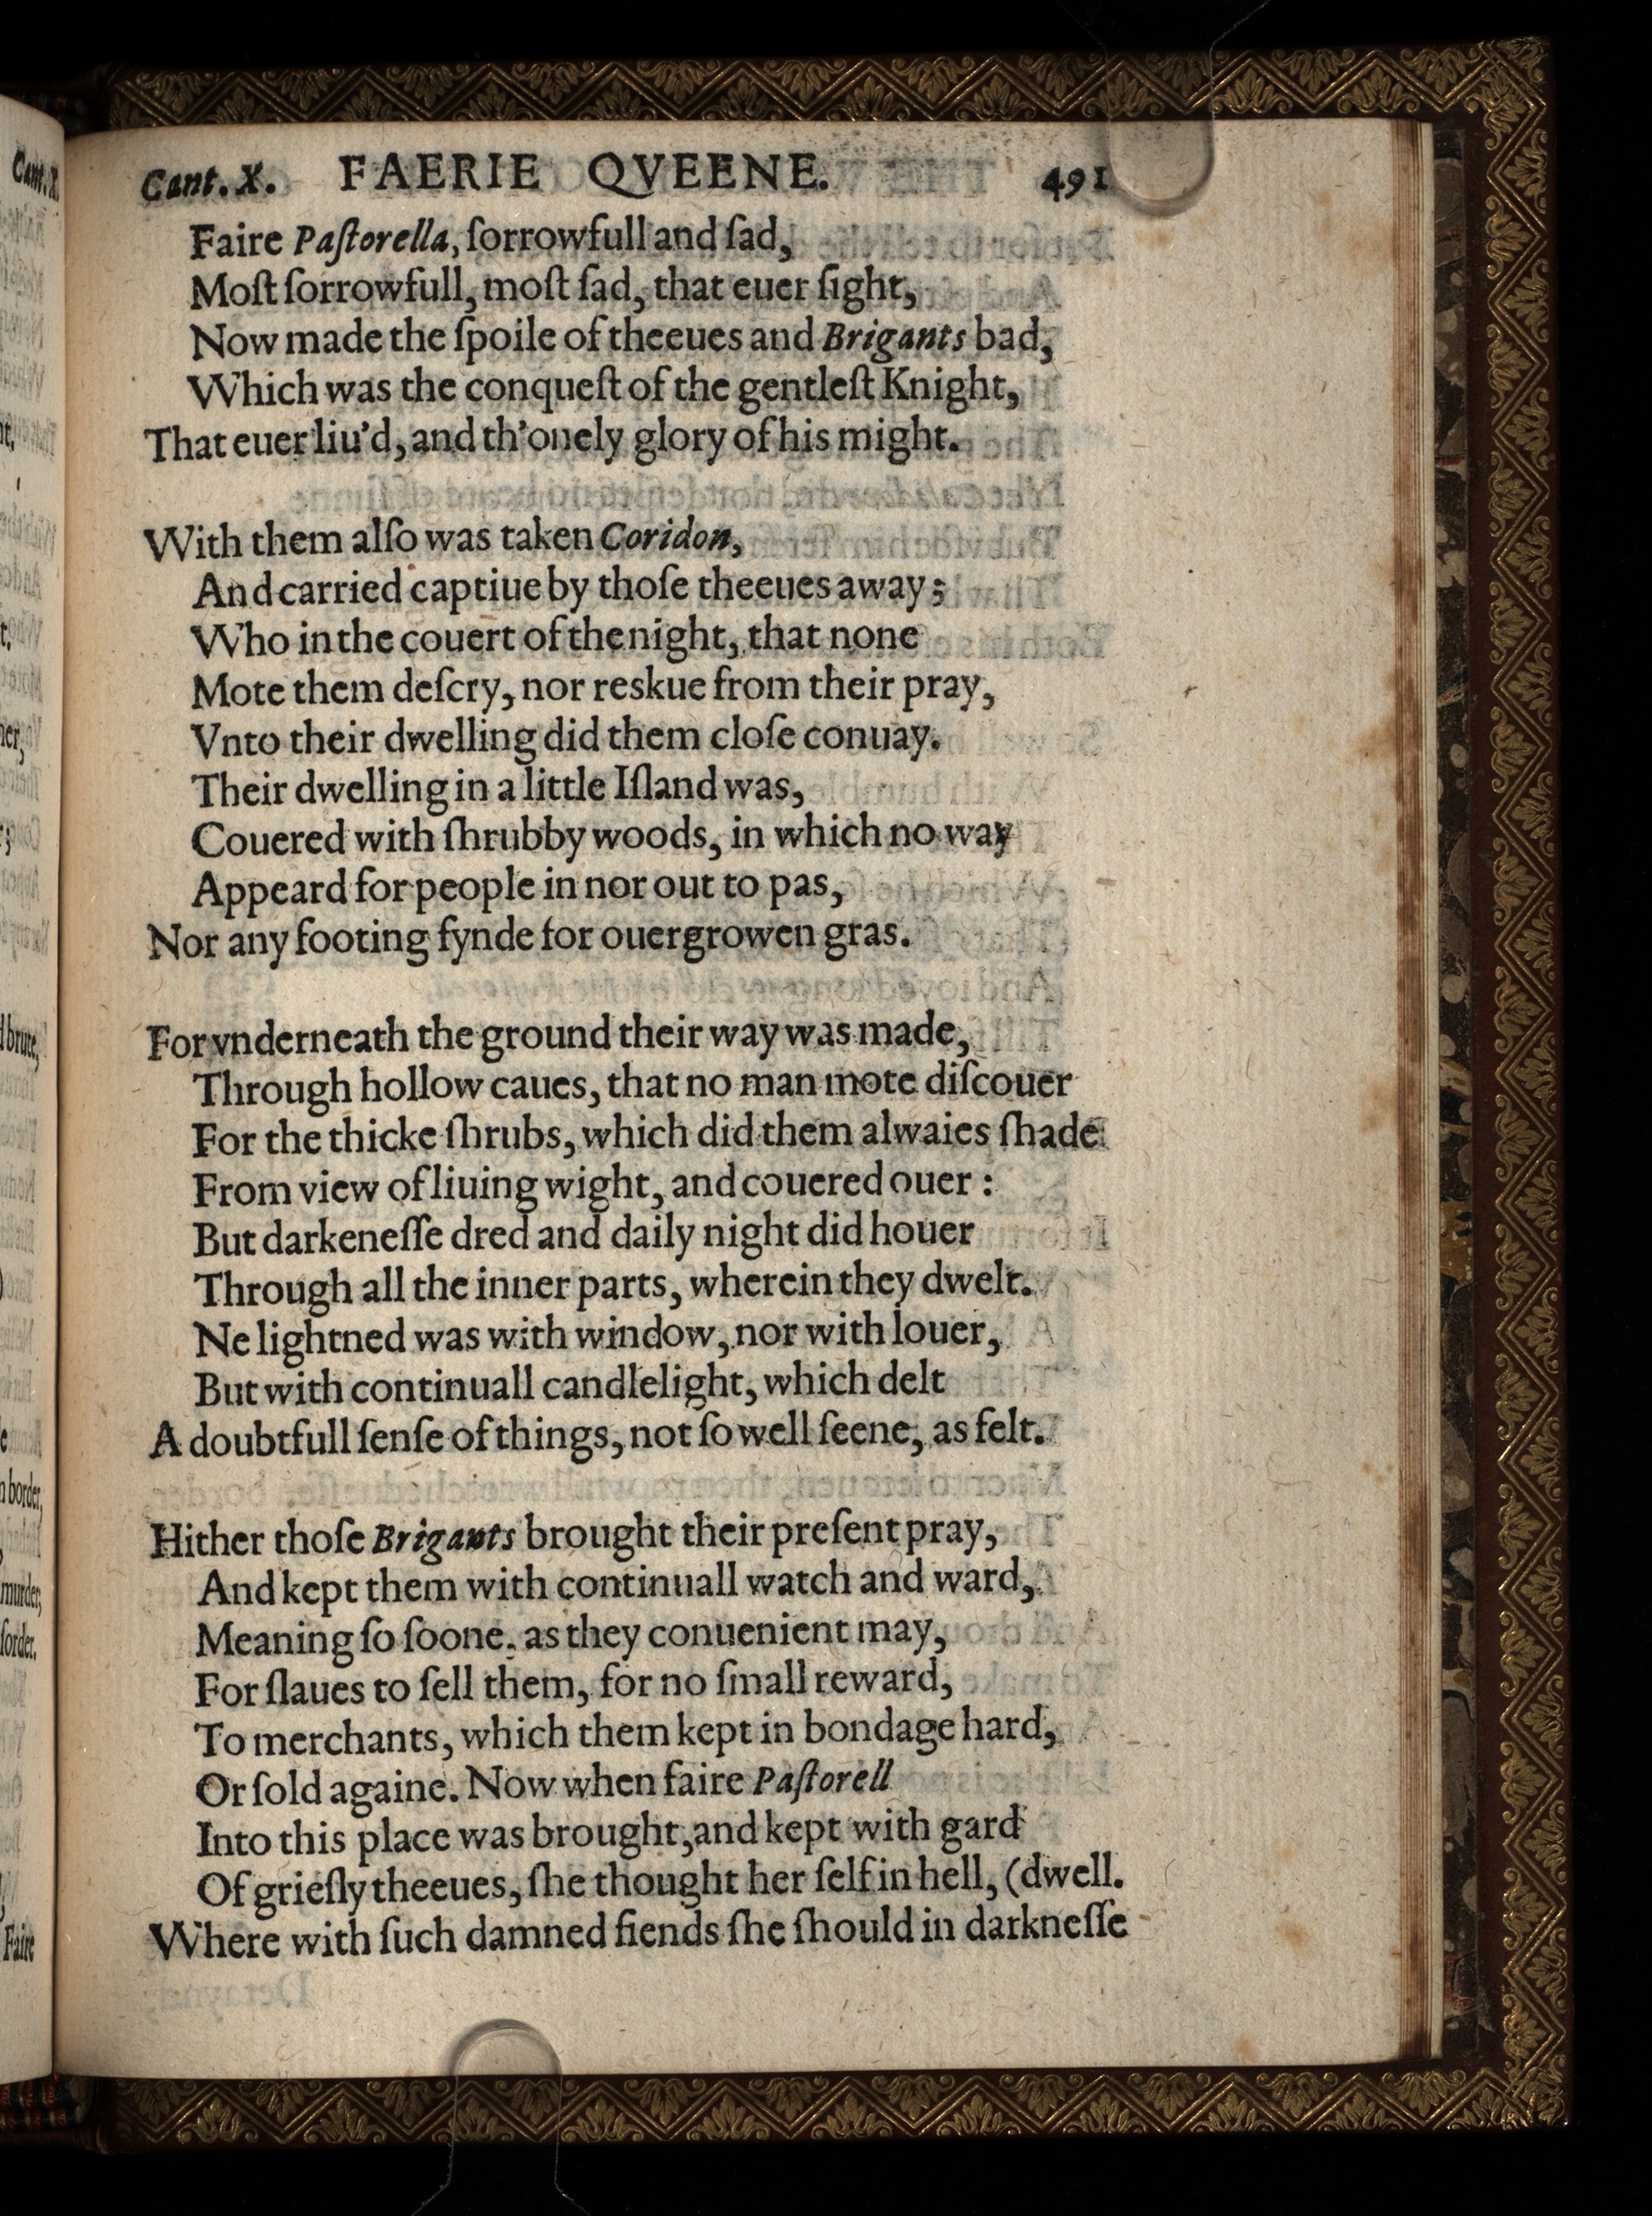 Cant. X. FAERIE QVEENE. 491
Faire Paſtorella, ſorrowfull and ſad,
Moſt ſorrowfull, moſt ſad, that euer ſight,
Now made the ſpoile of theeues and Brigants bad,
Which was the conqueſt of the gentleſt Knight,
That euer liu'd, and th'onely glory of his might.
With them alſo was taken Coridon,
And carried captiue by thoſe theeues away;
Who in the couert of the night, that none
Mote them deſcry, nor reskue from their pray,
Vnto their dwelling did them cloſe conuay.
Their dwelling in a little Iſland was,
Couered with ſhrubby woods, in which no way
Appeard for people in nor out to pas,
Nor any footing fynde for ouergrowen gras.
For vnderneath the ground their way was made,
Through hollow caues, that no man mote diſcouer
For the thicke ſhrubs, which did them alwaies ſhade
From view of liuing wight, and couered ouer :
But darkeneſſe dred and daily night did houer
Through all the inner parts, wherein they dwelt.
Ne lightned was with window, nor with louer,
But with continuall candlelight, which delt
A doubtfull ſenſe of things, not ſo well ſeene, as felt.
Hither thoſe Brigants brought their preſent pray,
And kept them with continuall watch and ward,
Meaning ſo ſoone, as they conuenient may,
For ſlaues to ſell them, for no ſmall reward,
To merchants, which them kept in bondage hard,
Or ſold againe. Now when faire Paſtorell
Into this place was brought, and kept with gard
Of grieſly theeues, ſhe thought her ſelf in hell, (dwell.
Where with ſuch damned fiends ſhe ſhould in darkneſſe